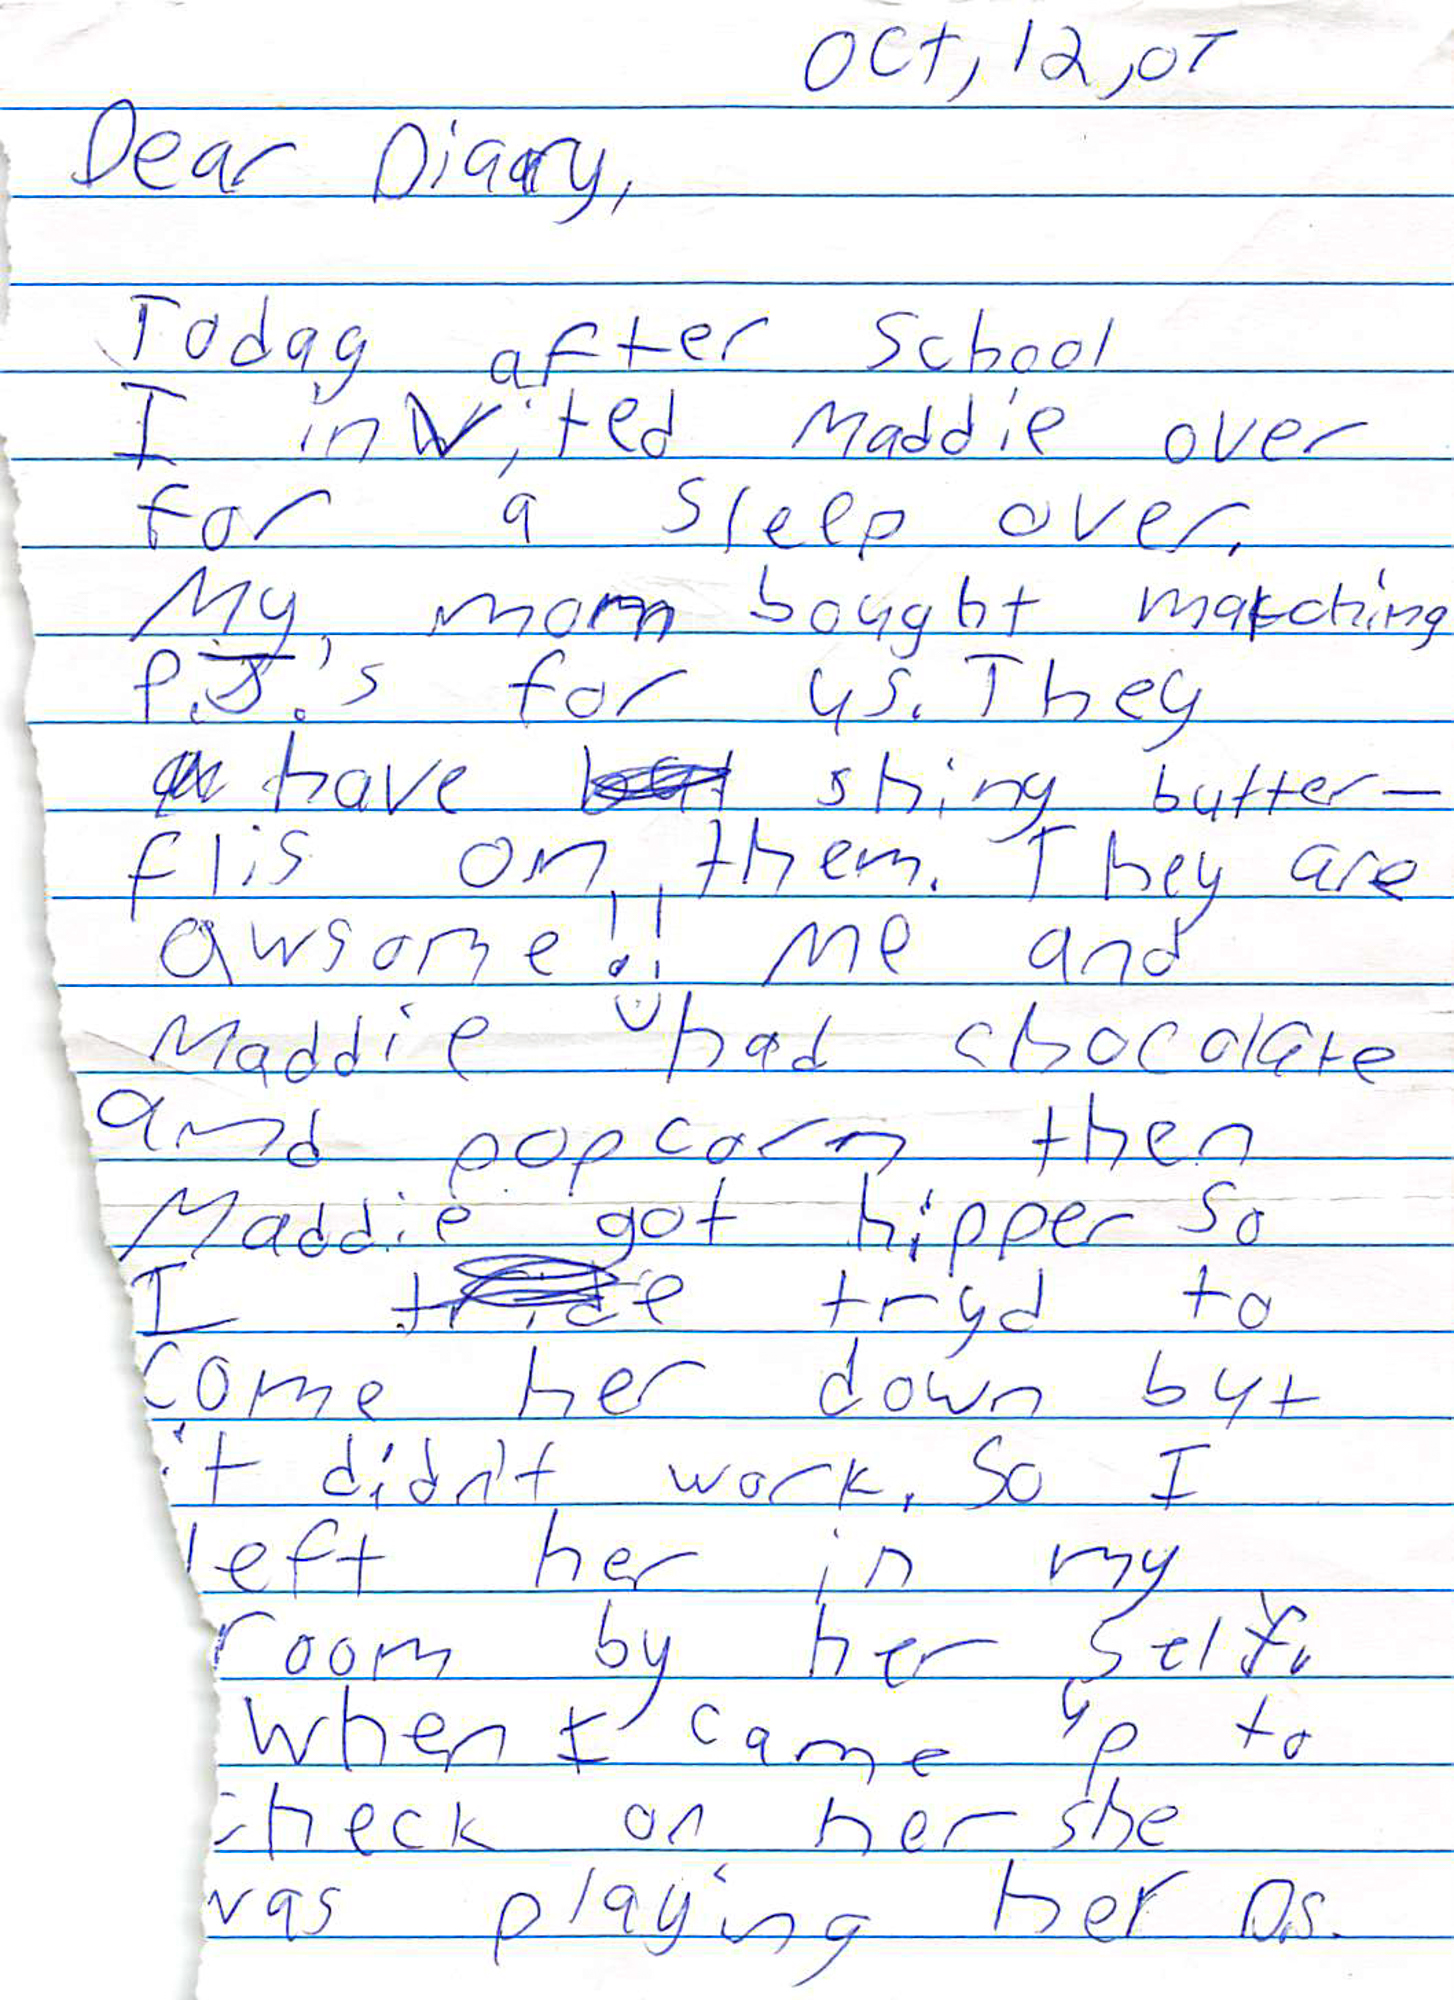 Oct, 12, 07
Dear Diary,
Today after School
I invited Maddie over
for a Sleep over.
My mom bought matching
P.J.'s for us. They
have shiny butter-
flis on them. They are
awsome!! Me and
Maddie had chocolate
and popcorn then
Maddie got hipper so
I tryd to
come her down but
it didn't work. So I
left her in my
room by her self.
When I came up to
check on her she
was playing her Ds.